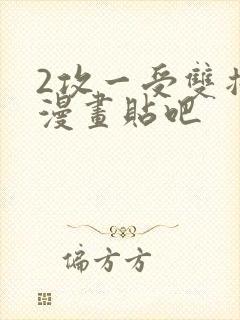 2攻一受雙
漫畫貼吧
偏方方